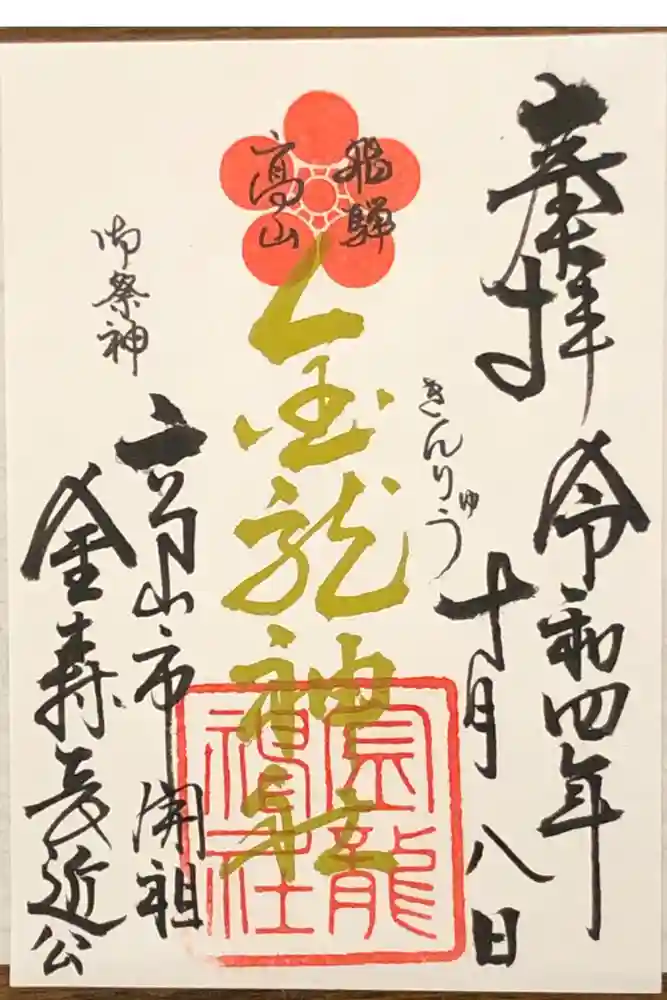 奉拝
令和四年
十月八日
きんりゅう
飛騨
高山
金龍神社
金龍
神社
御祭神
高山市 開祖
金森長近公